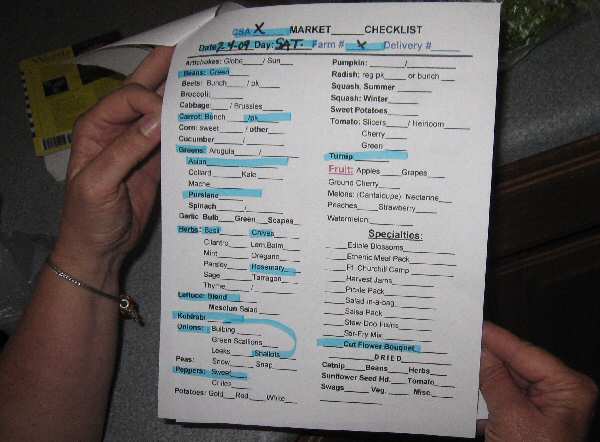 CSA X MARKET____ CHECKLIST
Date 2-4-09 Day: SAT. Farm # X Delivery #____
Artichokes: Globe____/ Sun___
Beans: Green____
Beets: Bunch____/ pk____
Broccoli:____
Cabbage:____/ Brussles____
Carrot: Bunch____/pk____
Corn: sweet____/ other____
Cucumber____/____
Greens: Arugula____/____
Asian____
Collard____Kale____
Mache____
Purslane____
Spinach____/____
Garlic Bulb___Green___Scapes___
Herbs: Basil____ Chives____
Cilantro____ Lem.Balm____
Mint____ Oregano____
Parsley____ Rosemary____
Sage____ Tarragon____
Thyme____/____
Lettuce: Blend____
Mesclun Salad____
Kohlrabi____
Onions: Bulbing____
Green Scallions____
Leeks____ Shallots____
Peas: Snow____ Snap____
Peppers: Sweet____
Chiles____
Potatoes: Gold___Red___White___
Pumpkin:____/____
Radish: reg pk____ or bunch____
Squash, Summer____
Squash: Winter____
Sweet Potatoes____
Tomato: Slicers____/ Heirloom____
Cherry____
Green____
Turnip____
Fruit: Apples____Grapes____
Ground Cherry____
Melons: (Cantaloupe) Nectarine____
Peaches____ Strawberry____
Watermelon____
Specialties:
____Edible Blossoms____
____Ethenic Meal Pack____
____Ft. Churchill Camp____
____Harvest Jams____
____Pickle Pack____
____Salad-in-a-bag____
____Salsa Pack____
____Stir-Fry Mix____
____Cut Flower Bouquet____
____DRIED____
Catnip____Beans____Herbs____
Sunflower Seed Hd.___ Tomato____
Swags____ Veg.____ Misc____